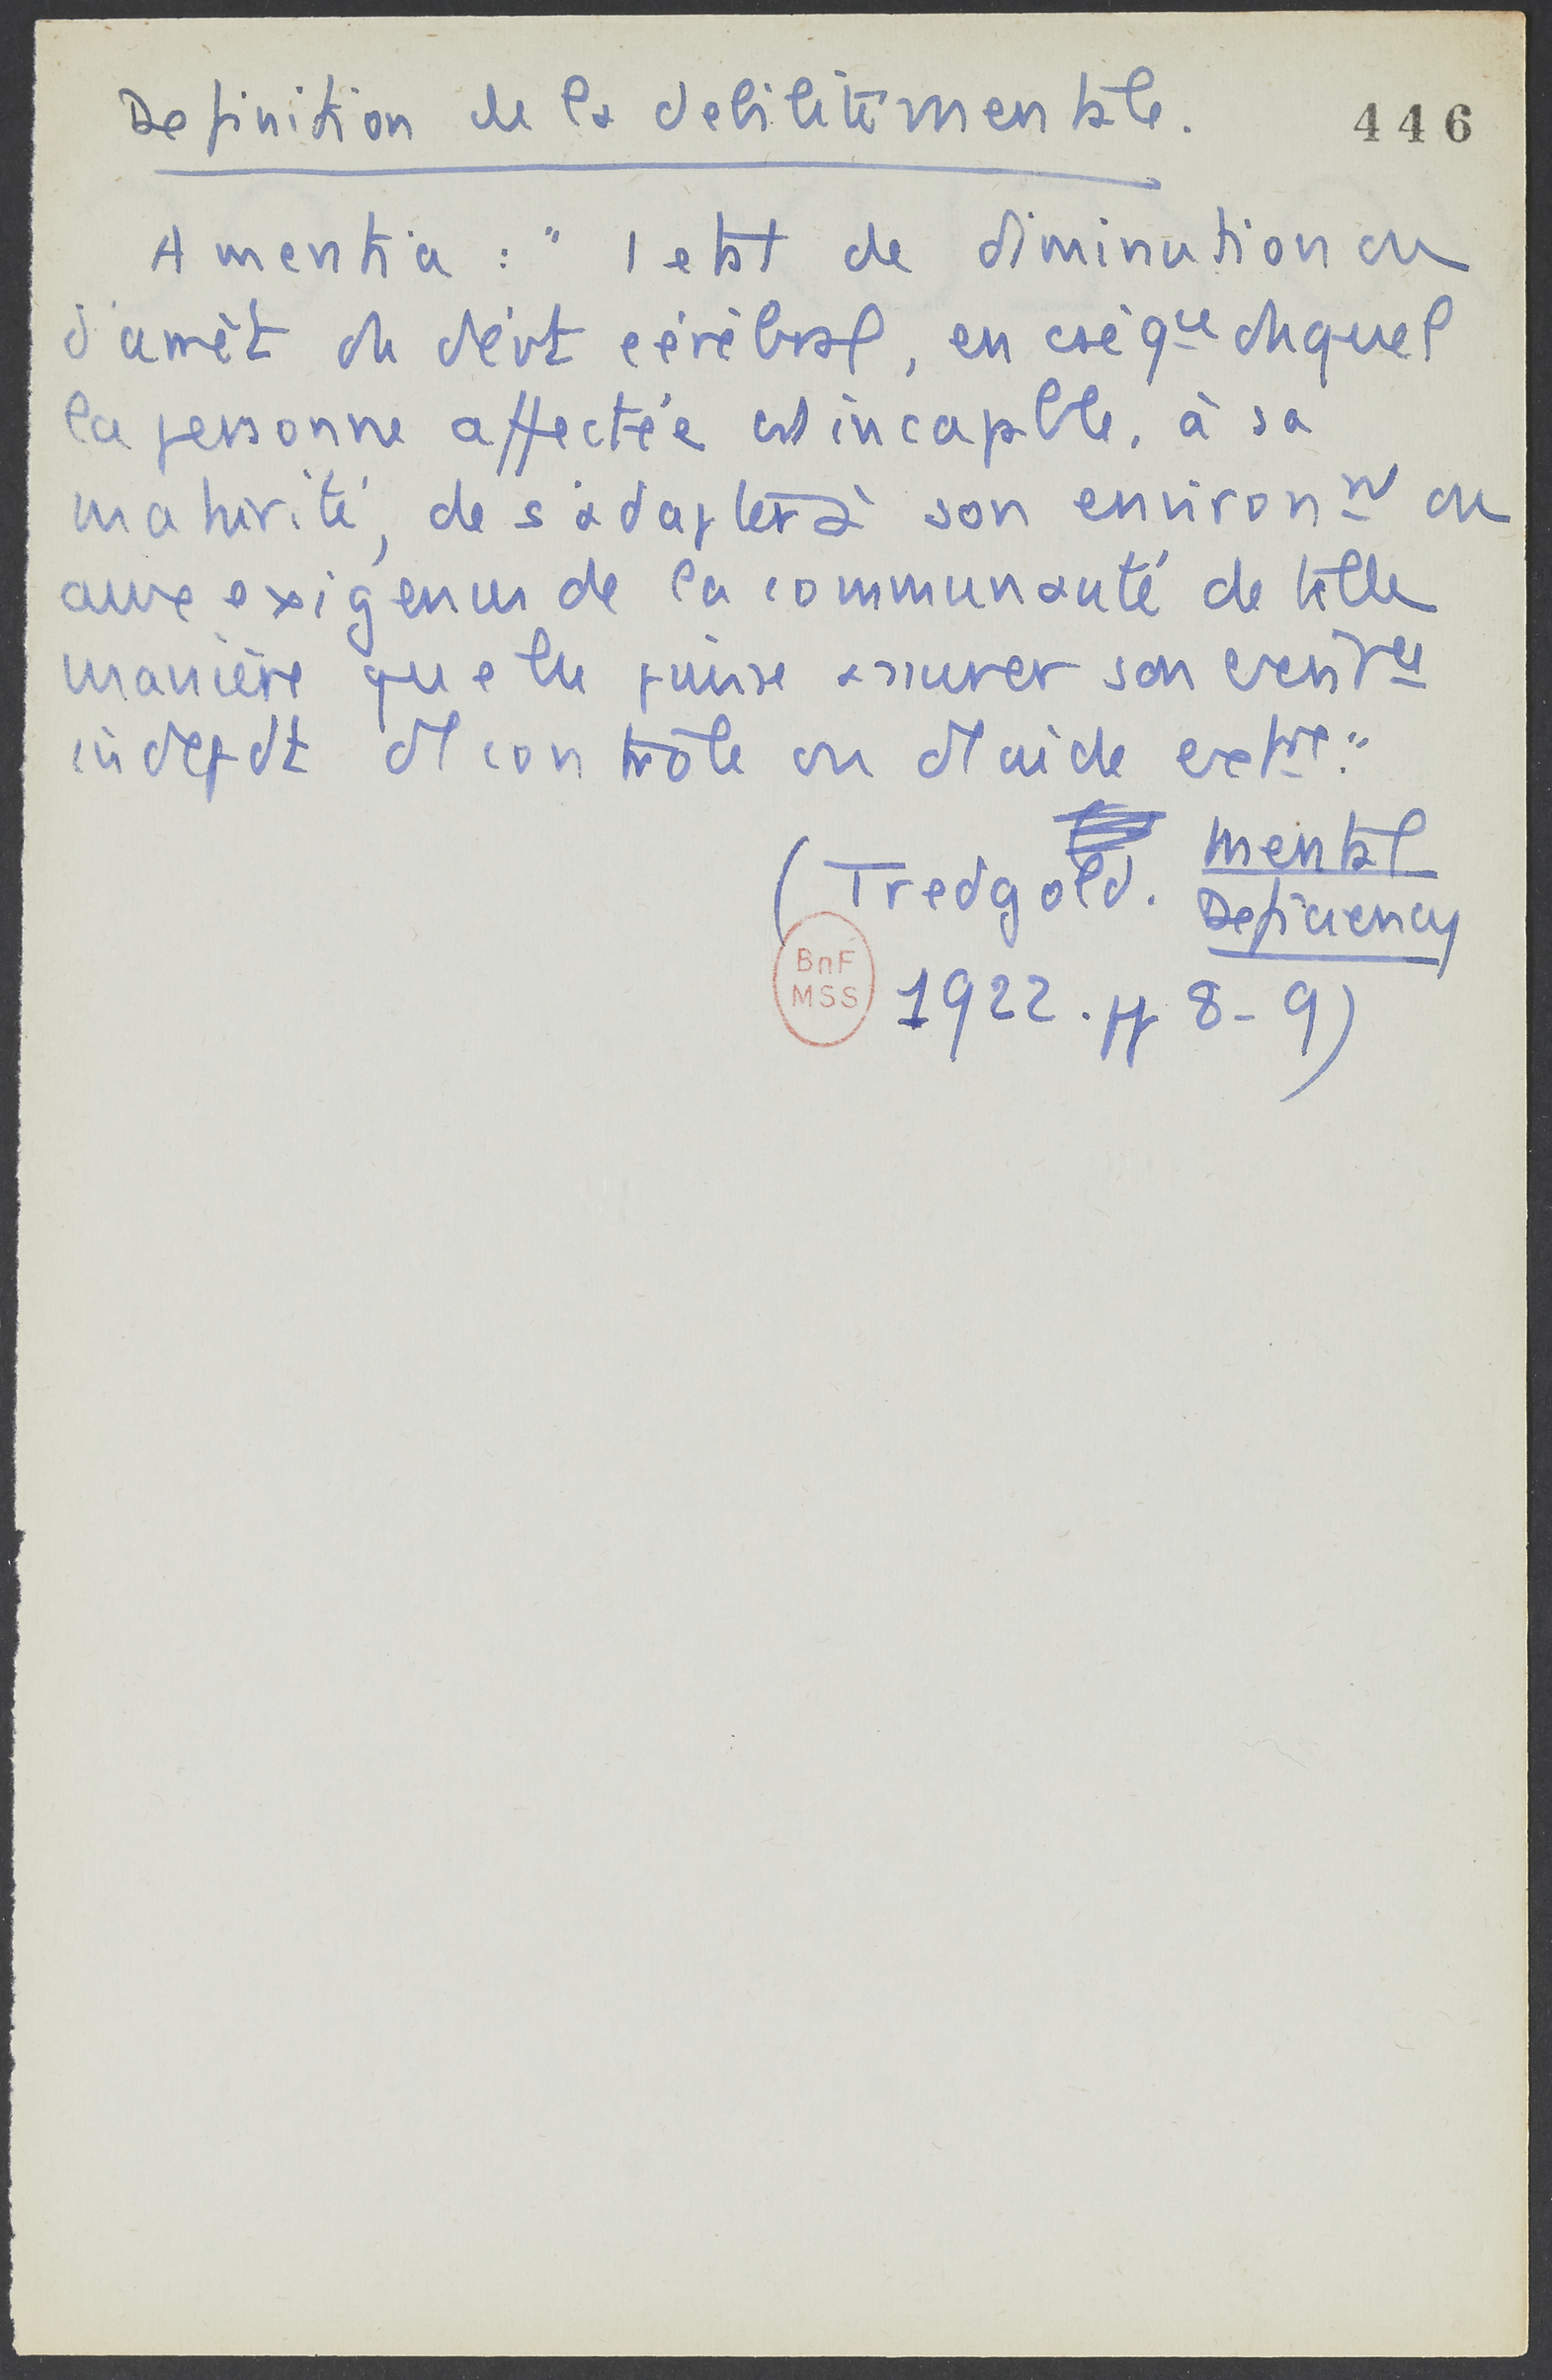 Definition de la debilité mentale.
446
Amentia : " 1 etat de diminution ou
d'arrêt du dévt cérébral, en cséqce duquel
la personne affectée est incapable, à sa
maturité, de s'adapter à son environnt ou
aux exigences de la communauté de telle
manière quelle puisse assurer son
indepdt dt contrôle ou dt aide extre."
(Tredgold. Mental
Deficiency
BnF
MSS
1922. pp 8-9)